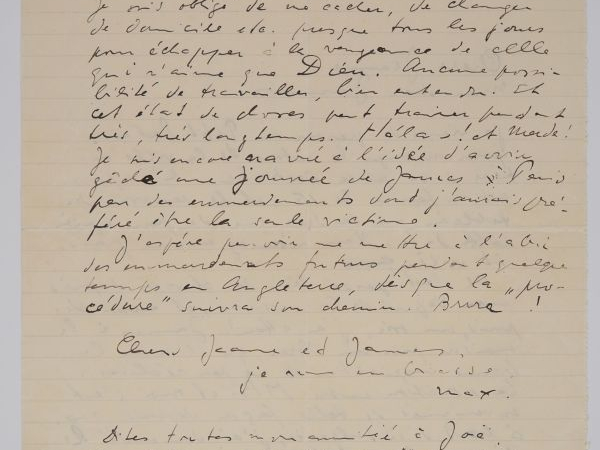 je suis obligé de me cacher, de changer
de domicile etc. presque tous les jours
pour échapper à la vengeance de celle
qui n'aime que Dieu. Aucune possi-
bilité de travailler, bien entendu. Et
cet état de choses peut trainer pendant
très, très longtemps. Hélas! et Merde!
Je suis encore navré à l'idée d'avoir
gâché une journée de James à Paris
par des emmerdements dont j'aurais pré-
féré être la seule victime.
J'espère pouvoir me mettre à l'abri
des emmerdements futurs pendant quelque
temps en Angleterre, dès que la „pro-
cédure" suivra son chemin. Brrr!
Chers Jeanne et James,
je vous embrasse
max.
Dites toutes mon amitié à Joë.